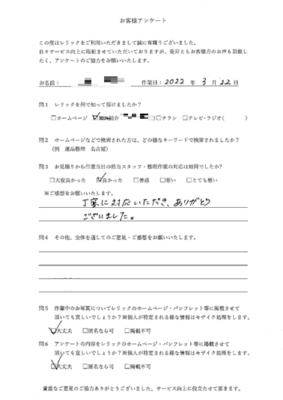 お客様アンケート
この度はレリックをご利用いただきまして誠に有難うございました。
日々サービス向上に勤めさせていただいておりますが、是非ともお客様方のお声も頂戴し
たく、アンケートのご協力をお願いいたします。
お名前: 作業日: 2022 年 3 月 22 日
問1 レリックを何で知って頂けましたか?
□ホームページ ☑ 紹介 □チラシ □テレビ・ラジオ( )
問2 ホームページなどで検索された方は、どの様なキーワードで検索されましたか?
(例 遺品整理 名古屋)
問3 お見積りから作業当日の担当スタッフ・整理作業の対応は如何でしたか?
□大変良かった ☑良かった □普通 □悪い □とても悪い
※ご感想をお願いいたします。
丁寧に対応いただき、ありがとう
ございました。
問4 その他、全体を通してのご意見・ご感想をお願いいたします。
問5 作業中のお写真についてレリックのホームページ・パンフレット等に掲載させて
頂いても宜しいでしょうか?※個人が特定される様な情報はモザイク処理をします。
☑大丈夫 □匿名なら可 □掲載不可
問6 アンケートの内容をレリックのホームページ・パンフレット等に掲載させて
頂いても宜しいでしょうか?※個人が特定される様な情報はモザイク処理をします。
☑大丈夫 □匿名なら可 □掲載不可
貴重なご意見のご協力ありがとうございました。サービス向上に役立たせて頂きます。